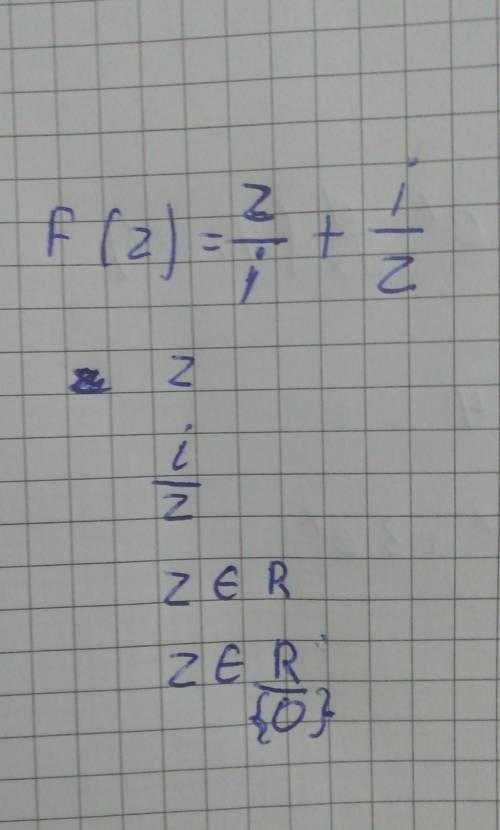 F(z) = z/i + i/z
z
i/z
z ∈ R
z ∈ R/{0}